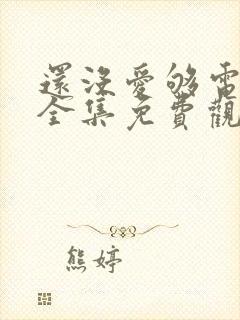 還沒愛够電
全集免費觀
熊婷